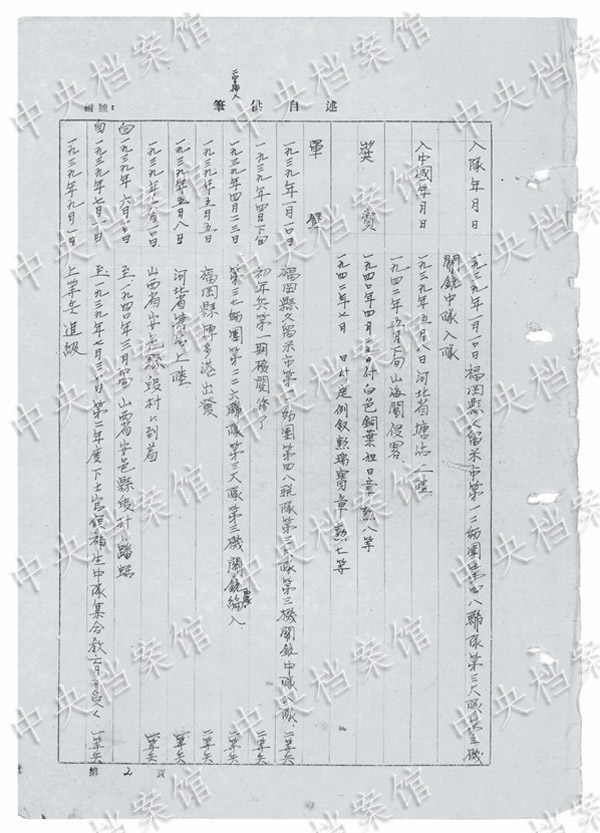 述自供筆
編號：
入隊年月日
一九三九年一月一〇日福岡縣久留米市第一二師團第四八聯隊第三大隊第三機
關銃中隊入隊
入中國年月日
一九三九年五月八日河北省塘沽上陸
一九四二年五月下旬山海關侵害
奨賞
一九四〇年四月二九日付白色銅葉旭日章勲八等
一九四二年七月 日付定例叙勲瑞寶章勲七等
軍歴
一九三九年一月一〇日 福岡縣久留米市第一二師團第四八聯隊第三大隊第三機關銃中隊入隊 二等兵
一九三九年四月下旬 初年兵第一期檢閲修了 二等兵
一九三九年四月二三日 第三七師團第二二六聯隊第三大隊第三機關銃 編入 二等兵
一九三九年五月五日 福岡縣博多港出發 二等兵
一九三九年五月八日 河北省塘沽上陸 二等兵
一九三九年 月一〇日 山西省安邑縣 村に到着 一等兵
自一九三九年六月一〇日 至一九四〇年三月 山西省安邑縣 村に蟠踞
自一九三九年七月 日 至一九三九年七月三〇日第二年度下士官候補生中隊集合教育 を受く 一等兵
一九三九年九月一日 上等兵進級
第2頁
中央档案馆